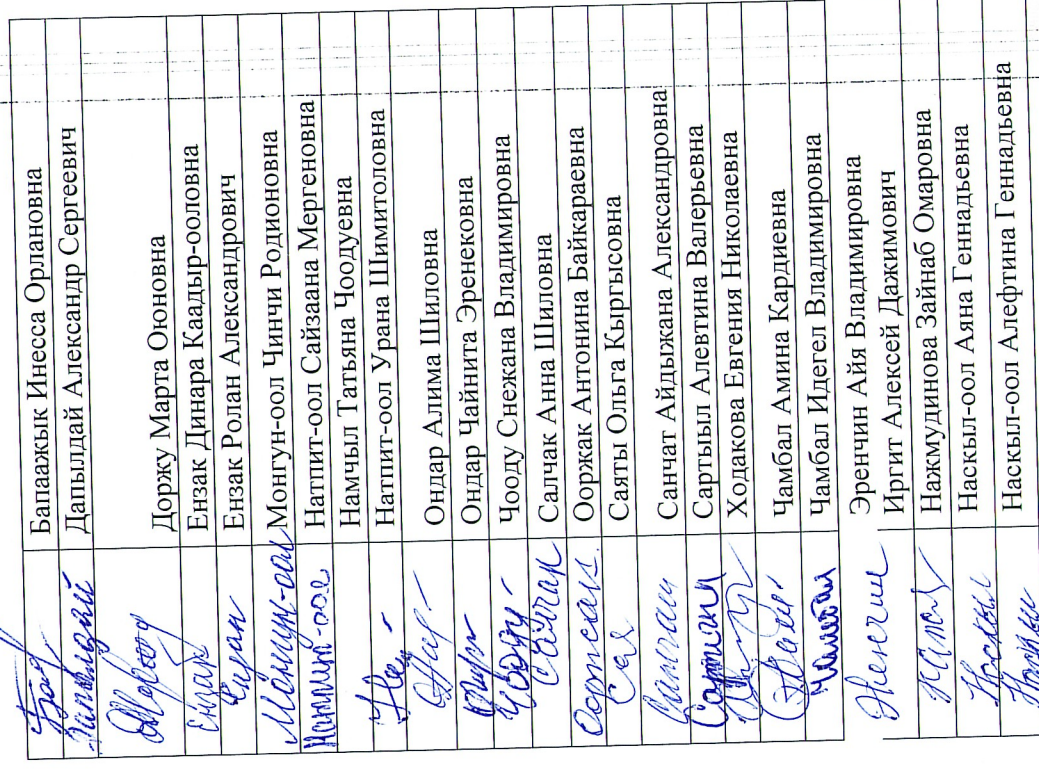 Бапаажык Инесса Орлановна
Дапылдай Александр Сергеевич
Доржу Марта Оюновна
Ензак Динара Каадыр-ооловна
Ензак Ролан Александрович
Монгун-оол Монгун-оол Чинчи Родионовна
Натпит-оол Натпит-оол Сайзаана Мергеновна
Намчыл Татьяна Чоодуевна
Натпит-оол Урана Шимитоловна
Ондар Алима Шиловна
Ондар Чайнита Эренековна
Чооду Чооду Снежана Владимировна
Салчак Салчак Анна Шиловна
Ооржак Антонина Байкараевна
Саяты Ольга Кыргысовна
Санчат Санчат Айдыжана Александровна
Сартыыл Алевтина Валерьевна
Ходакова Евгения Николаевна
Чамбал Амина Кардиевна
Чамбал Идегел Владимировна
Эренчин Айя Владимировна
Иргит Алексей Дажимович
Нажмудинова Зайнаб Омаровна
Наскыл-оол Аяна Геннадьевна
Наскыл-оол Алефтина Геннадьевна